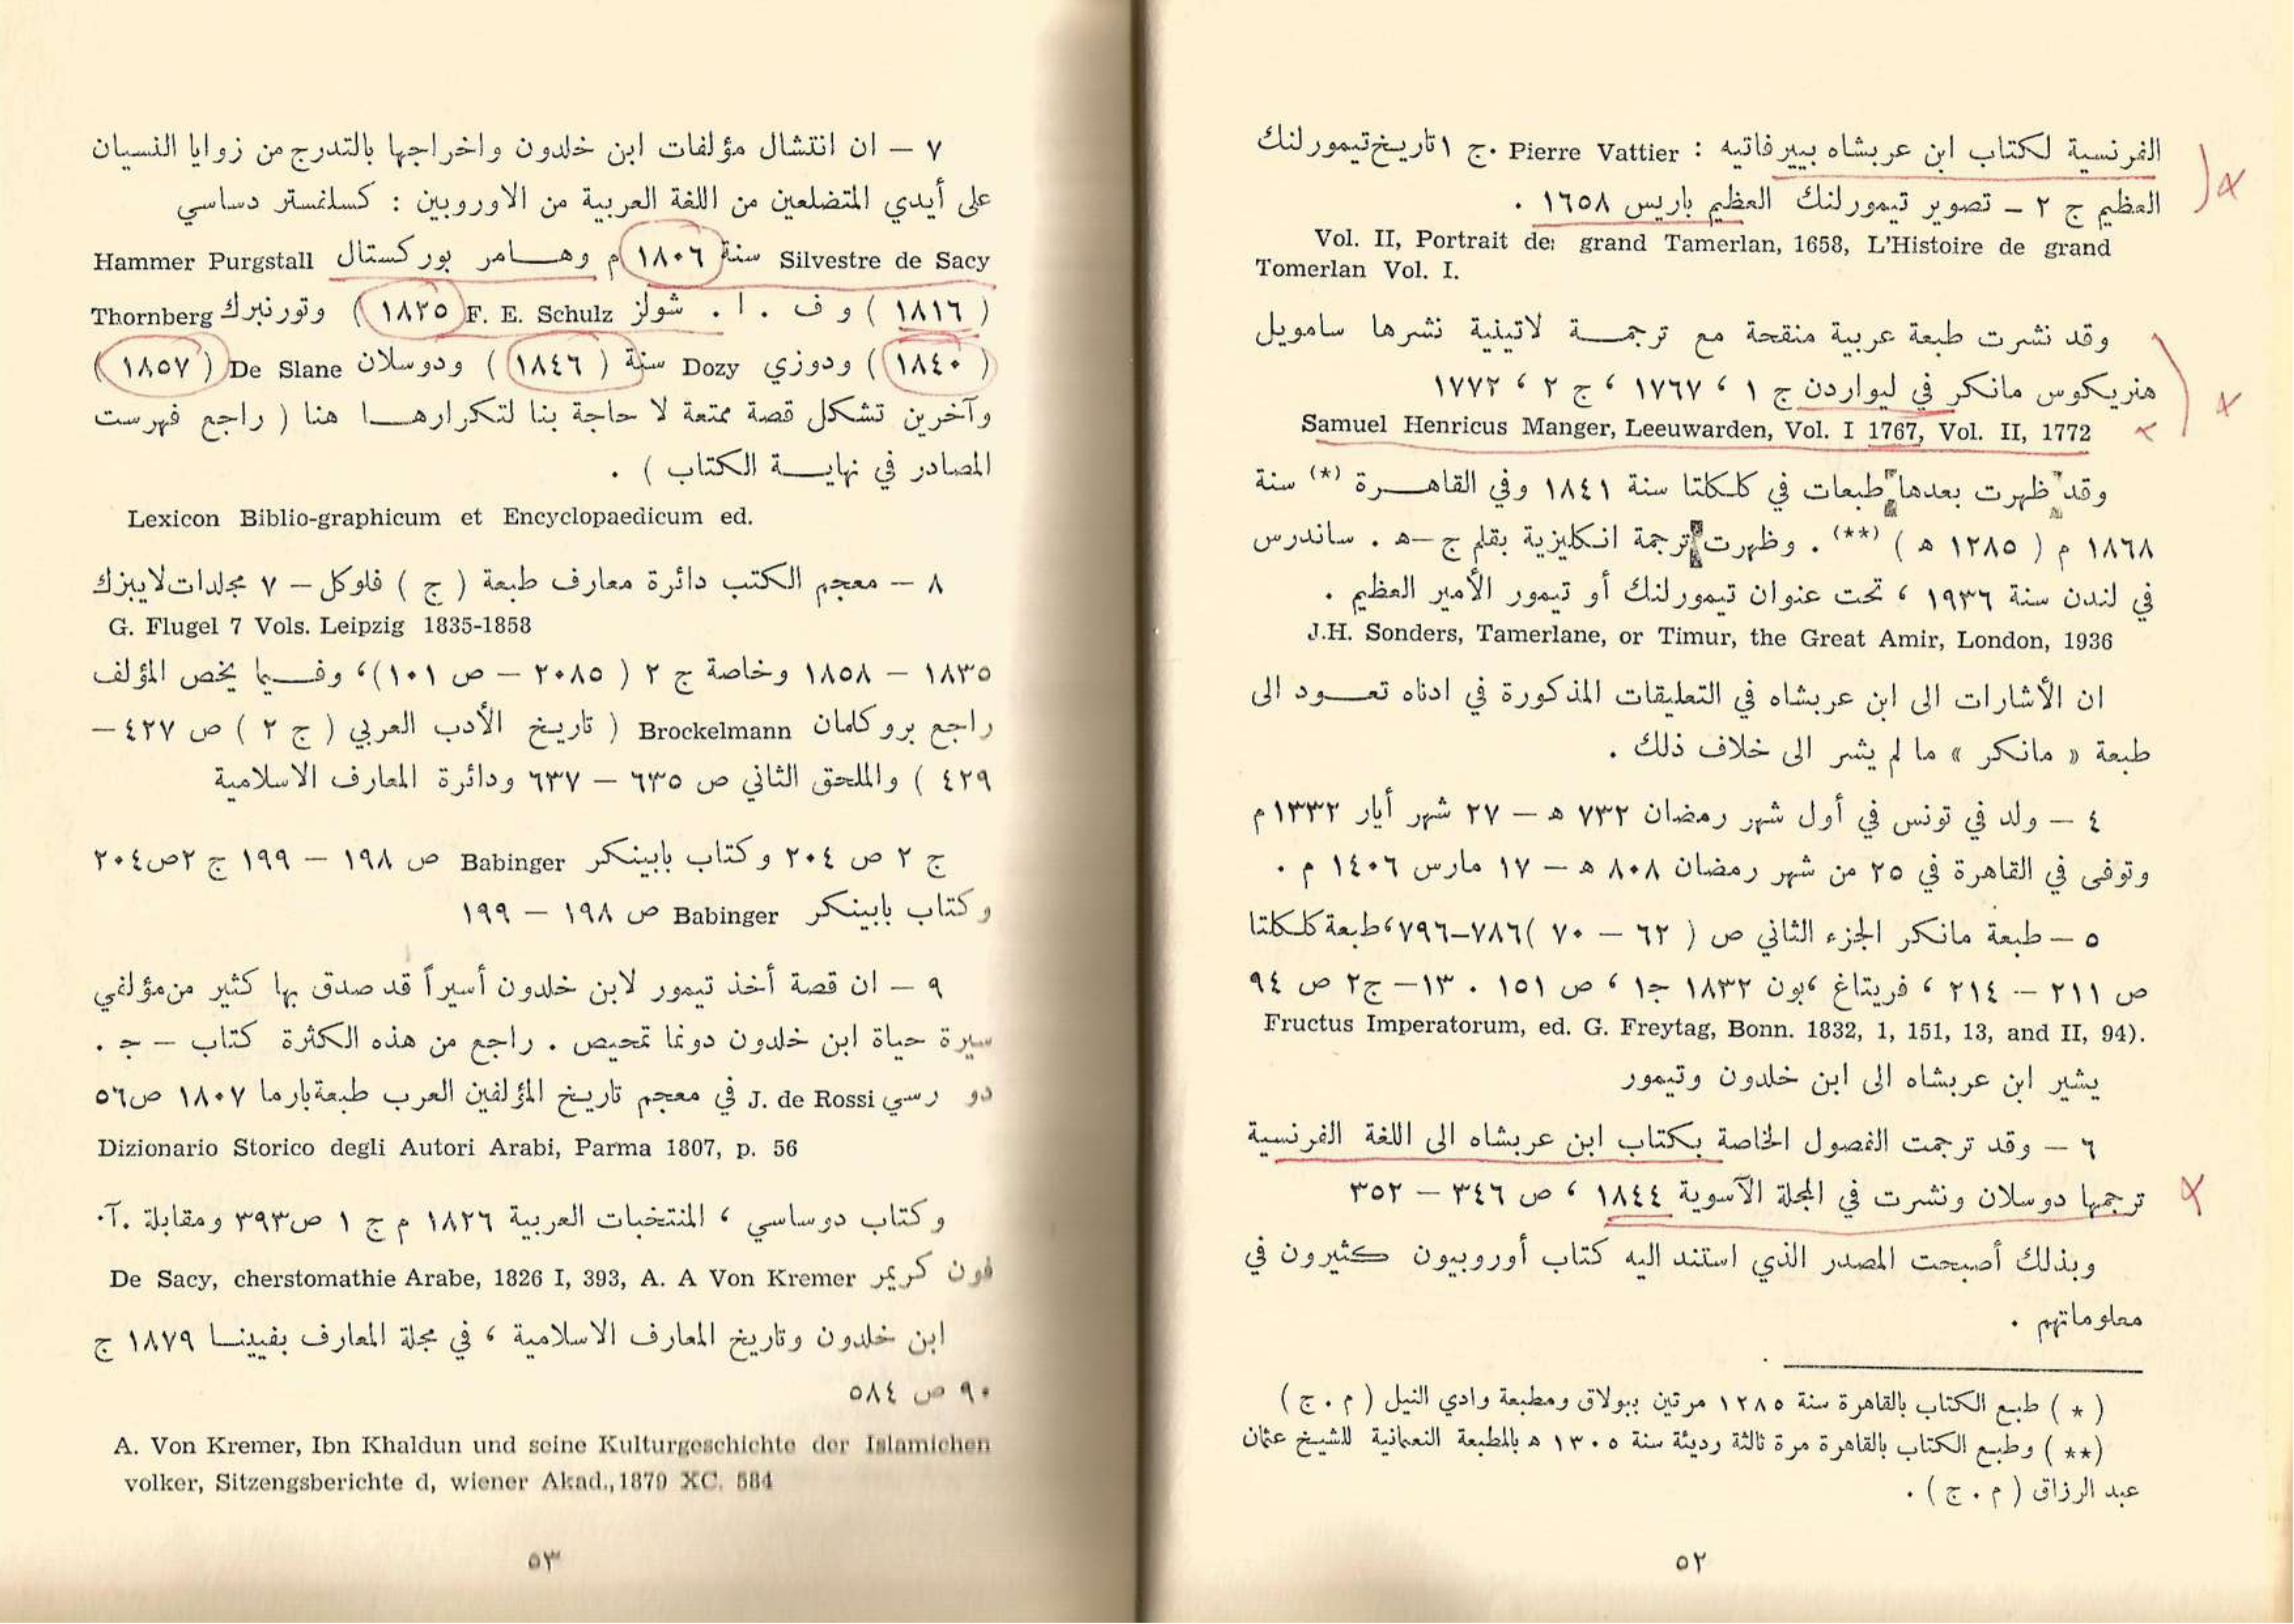 الفرنسية لكتاب ابن عربشاه بييرفاتيه : Pierre Vattier ٠ ج ١ تاريخ تيمورلنك
العظيم ج ٢ ـ تصوير تيمورلنك العظيم باريس ١٦٥٨ .
Vol. II, Portrait de: grand Tamerlan, 1658, L'Histoire de grand
Tomerlan Vol. I.
وقد نشرت طبعة عربية منقحة مع ترجمة لاتينية نشرها سامويل
هنريكوس مانكر في ليواردن ج ١ ، ١٧٦٧ ، ج ٢ ، ١٧٧٢
Samuel Henricus Manger, Leeuwarden, Vol. I 1767, Vol. II, 1772
وقد ظهرت بعدها طبعات في كلكلتا سنة ١٨٤١ وفي القاهرة (*) سنة
١٨٦٨ م ( ١٢٨٥ ه ) (**) . وظهرت ترجمة انكليزية بقلم ج –ه . ساندرس
في لندن سنة ١٩٣٦ ، تحت عنوان تيمورلنك أو تيمور الأمير العظيم .
J.H. Sonders, Tamerlane, or Timur, the Great Amir, London, 1936
ان الأشارات الى ابن عربشاه في التعليقات المذكورة في ادناه تعود الى
طبعة « مانكر » ما لم يشر الى خلاف ذلك .
٤ – ولد في تونس في أول شهر رمضان ٧٣٢ ه – ٢٧ شهر أيار ١٣٣٢ م
وتوفى في القاهرة في ٢٥ من شهر رمضان ٨٠٨ ه – ١٧ مارس ١٤٠٦ م .
٥ – طبعة مانكر الجزء الثاني ص ( ٦٢ – ٧٠ )٧٨٦–٧٩٦، طبعة كلكلتا
ص ٢١١ – ٢١٤ ، فريتاغ ،بون ١٨٣٢ ج١ ، ص ١٥١ . ١٣– ج٢ ص ٩٤
Fructus Imperatorum, ed. G. Freytag, Bonn. 1832, 1, 151, 13, and II, 94).
يشير ابن عربشاه الى ابن خلدون وتيمور
٦ – وقد ترجمت الفصول الخاصة بكتاب ابن عربشاه الى اللغة الفرنسية
ترجمها دوسلان ونشرت في المجلة الآسوية ١٨٤٤ ، ص ٣٤٦ – ٣٥٢
وبذلك أصبحت المصدر الذي استند اليه كتاب أوروبيون كثيرون في
معلوماتهم .
( * ) طبع الكتاب بالقاهرة سنة ١٢٨٥ مرتين ببولاق ومطبعة وادي النيل ( م . ج )
(**) وطبع الكتاب بالقاهرة مرة ثالثة رديئة سنة ١٣٠٥ ه بالمطبعة النعمانية للشيخ عثمان
عبد الرزاق ( م . ج ) .
٥٢
٧ – ان انتشال مؤلفات ابن خلدون واخراجها بالتدرج من زوايا النسيان
على أيدي المتضلعين من اللغة العربية من الاوروبيين : كسلفستر دساسي
Silvestre de Sacy سنة ١٨٠٦ م وهامر بوركستال Hammer Purgstall
( ١٨١٦ ) و ف . ا . شولز F. E. Schulz ( ١٨٢٥ ) وتورنبرك Thornberg
( ١٨٤٠ ) ودوزي Dozy سنة ( ١٨٤٦ ) ودوسلان De Slane ( ١٨٥٧ )
وآخرين تشكل قصة ممتعة لا حاجة بنا لتكرارها هنا ( راجع فهرست
المصادر في نهاية الكتاب ) .
Lexicon Biblio-graphicum et Encyclopaedicum ed.
٨ – معجم الكتب دائرة معارف طبعة ( ج ) فلوكل – ٧ مجلدات لايبزك
G. Flugel 7 Vols. Leipzig 1835-1858
١٨٣٥ – ١٨٥٨ وخاصة ج ٢ ( ٢٠٨٥ – ص ١٠١)، وفيما يخص المؤلف
راجع بروكلمان Brockelmann ( تاريخ الأدب العربي ( ج ٢ ) ص ٤٢٧–
٤٢٩ ) والملحق الثاني ص ٦٣٥ – ٦٣٧ ودائرة المعارف الاسلامية
ج ٢ ص ٢٠٤ وكتاب بابينكر Babinger ص ١٩٨ – ١٩٩ ج ٢ ص ٢٠٤
وكتاب بابينكر Babinger ص ١٩٨ – ١٩٩
٩ – ان قصة أخذ تيمور لابن خلدون أسيراً قد صدق بها كثير من مؤلفي
سيرة حياة ابن خلدون دونما تمحيص . راجع من هذه الكثرة كتاب – ج .
دو رسي J. de Rossi في معجم تاريخ المؤلفين العرب طبعة بارما ١٨٠٧ ص٥٦
Dizionario Storico degli Autori Arabi, Parma 1807, p. 56
وكتاب دوساسي ، المنتخبات العربية ١٨٢٦ م ج ١ ص٣٩٣ ومقابلة .آ.
فون كريمر De Sacy, cherstomathie Arabe, 1826 I, 393, A. A Von Kremer
ابن خلدون وتاريخ المعارف الاسلامية ، في مجلة المعارف بفيينا ١٨٧٩ ج
٩٠ ص ٥٨٤
A. Von Kremer, Ibn Khaldun und seine Kulturgeschichte der Islamichen
volker, Sitzengsberichte d, wiener Akad.,1879 XC. 584
٥٣